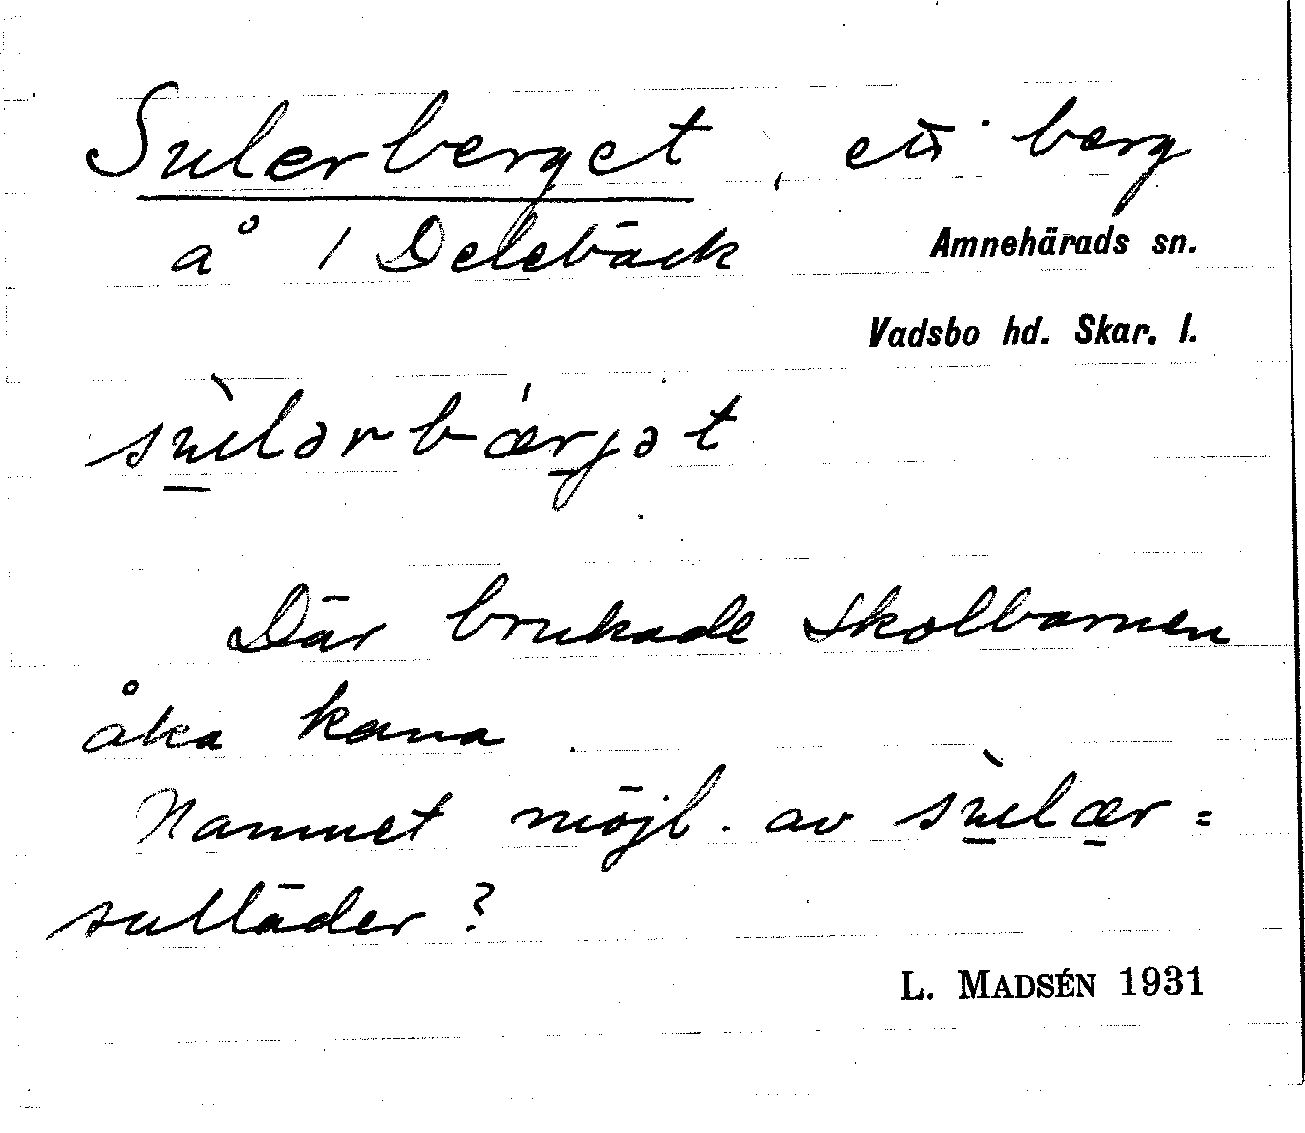 Sulerberget, ett berg
å 1 Delebäck Amnehärads sn.
Vadsbo hd. Skar. l.
sùlərbǽrjət
Där brukade skolbarnen
åka kana
Namnet möjl. av sùlær =
sulläder?
L. MADSÉN 1931